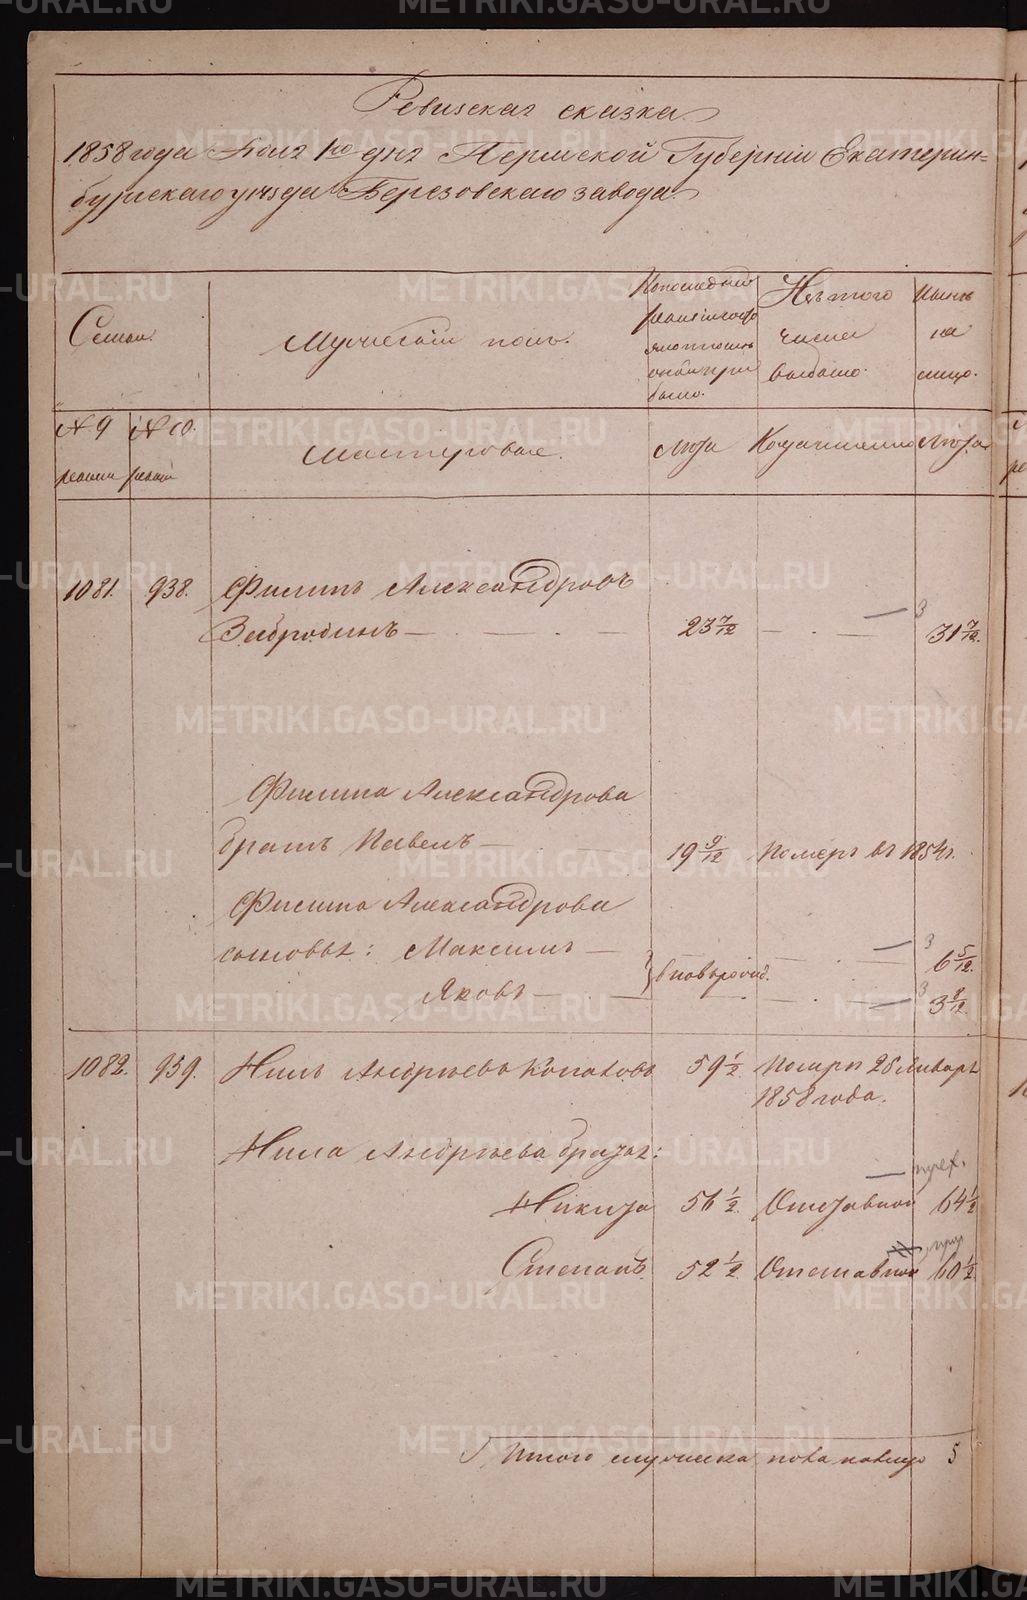 Ревизская сказка
1858 года Юня 1го дня Пермской Губерніи Екатерин=
бургскаго уѣзда Березовскаго завода.
Семьи.
Мужескій полъ.
Изъ того
числа
выбыло.
Нынѣ
на
лицо.
№ 9 № 10.
ревизіи
Мастеровые.
Лѣта
Лѣта
1081. 938. Филипъ Александровъ
3
Забродинъ — 23 7/12 — 31 7/12.
Филипа Александрова
братъ Павелъ — 19 9/12 Померъ въ 1854 г.
Филипа Александрова
3
сыновья: Максимъ — 6 5/12.
вновьрожд.
3
Яковъ — 3 8/12.
1082. 939. Нилъ Андреевъ Копаловъ 59 1/2. Померъ 28 Январѣ
1858 года.
Нила Андреева братья:
Никита 56 1/2. Отставной 64 1/2
Степанъ. 52 1/2. Отставной 60 1/2
Итого мужеска пола налицо 5
METRIKI.GASO-URAL.RU